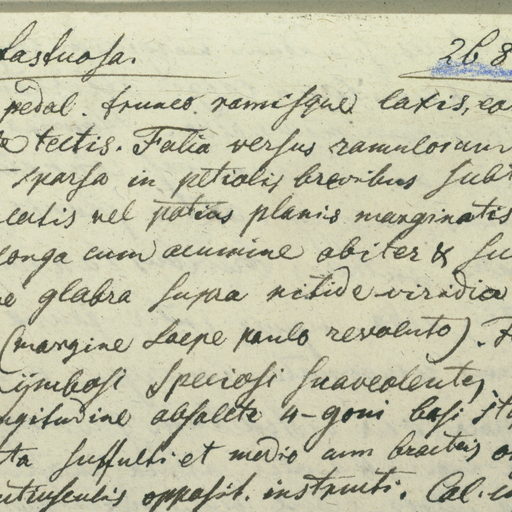 fastuosa. 2b 8
pedal. trunco ramisque laxis, co
tectis. Folia versus ramulorum
sparsa in petiolis brevibus subt
catis vel potius planis marginatis
longa cum acumine obiter & su
glabra supra nitide viridia
(margine saepe paulo revoluto). F
Cymbosi speciosi suaveolentes
longitudine absolete 4-goni basi sti
ta suffulti et medio cum bracteis o
utriusculis opposit. instructi. Cal.